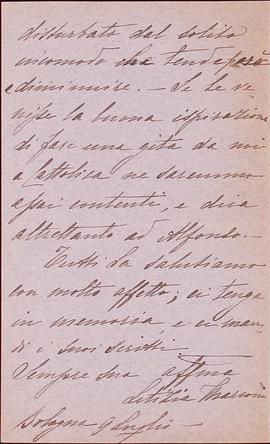 disturbato dal solito
incomodo che tende però
a diminuire. - Se le ve
nisse la buona ispirazione
di fare una gita da noi
a Cattolica ne saremmo
assai contenti, e dica
altrettanto ad Alfonso. -
Tutti La salutiamo
con molto affetto; ci tenga
in memoria, e ci man
di i suoi scritti
Sempre sua affma
Letizia
Bologna 9 Luglio -